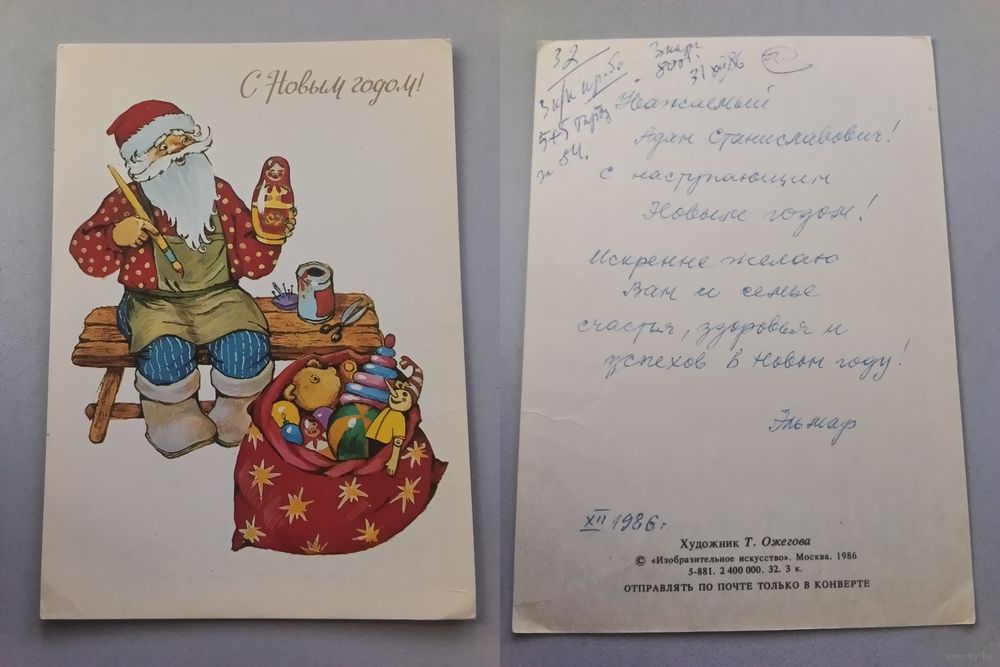 С Новым годом!
32
3 марк
800 г.
31 XII 86
5+5
за 84.
Уважаемый
Адам Станиславович!
С наступающим
Новым годом!
Искренне желаю
Вам и семье
счастья, здоровья и
успехов в Новом году!
Эльмар
XII 1986 г.
Художник Т. Ожегова
© «Изобразительное искусство». Москва. 1986
5-881. 2 400 000. 32. 3 к.
ОТПРАВЛЯТЬ ПО ПОЧТЕ ТОЛЬКО В КОНВЕРТЕ
www.ay.by